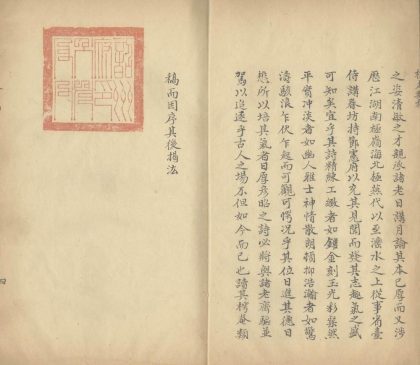 之姿清敏之才親承諸老日講月論其本已厚而又涉
歷江湖南極嶺海北極燕代以至灤水之上從事省臺
侍講春坊持節憲府以充其見聞而發其志趣氣之盛
可知矣宜乎其詩精練工緻者如鏤金刻玉光彩粲然
平實沖淡者如幽人雅士神情散朗頓抑浩瀚者如驚
濤駭浪乍伏乍起而可觀可愕況乎其位日進其德日
懋所以培其氣者日厚彥昭之詩必將與諸老齊驅並
駕以追逐乎古人之場不但如今而已也譜其樗菴類
稿而因序其後揭汯
四